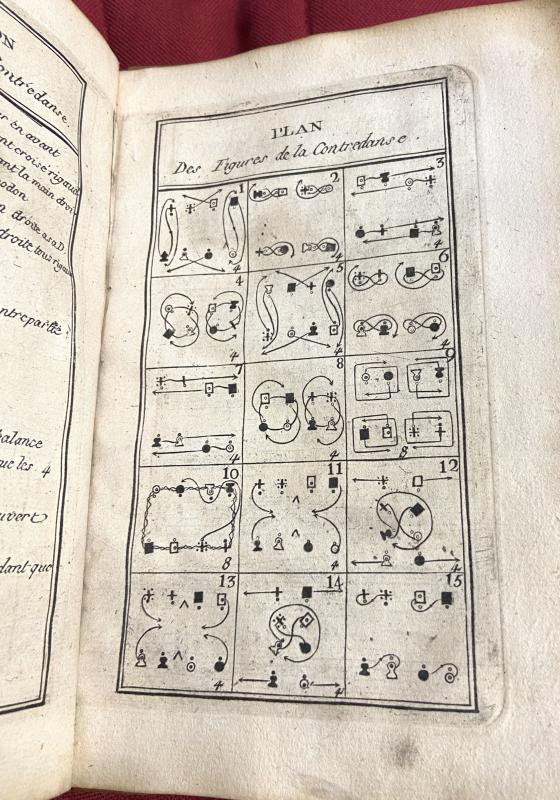 ON
Contredanse.
er en avant
ant la main droi
odon
ontrepartie
balance
que les 4
ouvert
dant que
PLAN
Des Figures de la Contredanse.
1 2 3
4 4 4
4 5 6
4 4 4
7 8 9
4 4 8
10 11 12
8 4 4
13 14 15
4 4